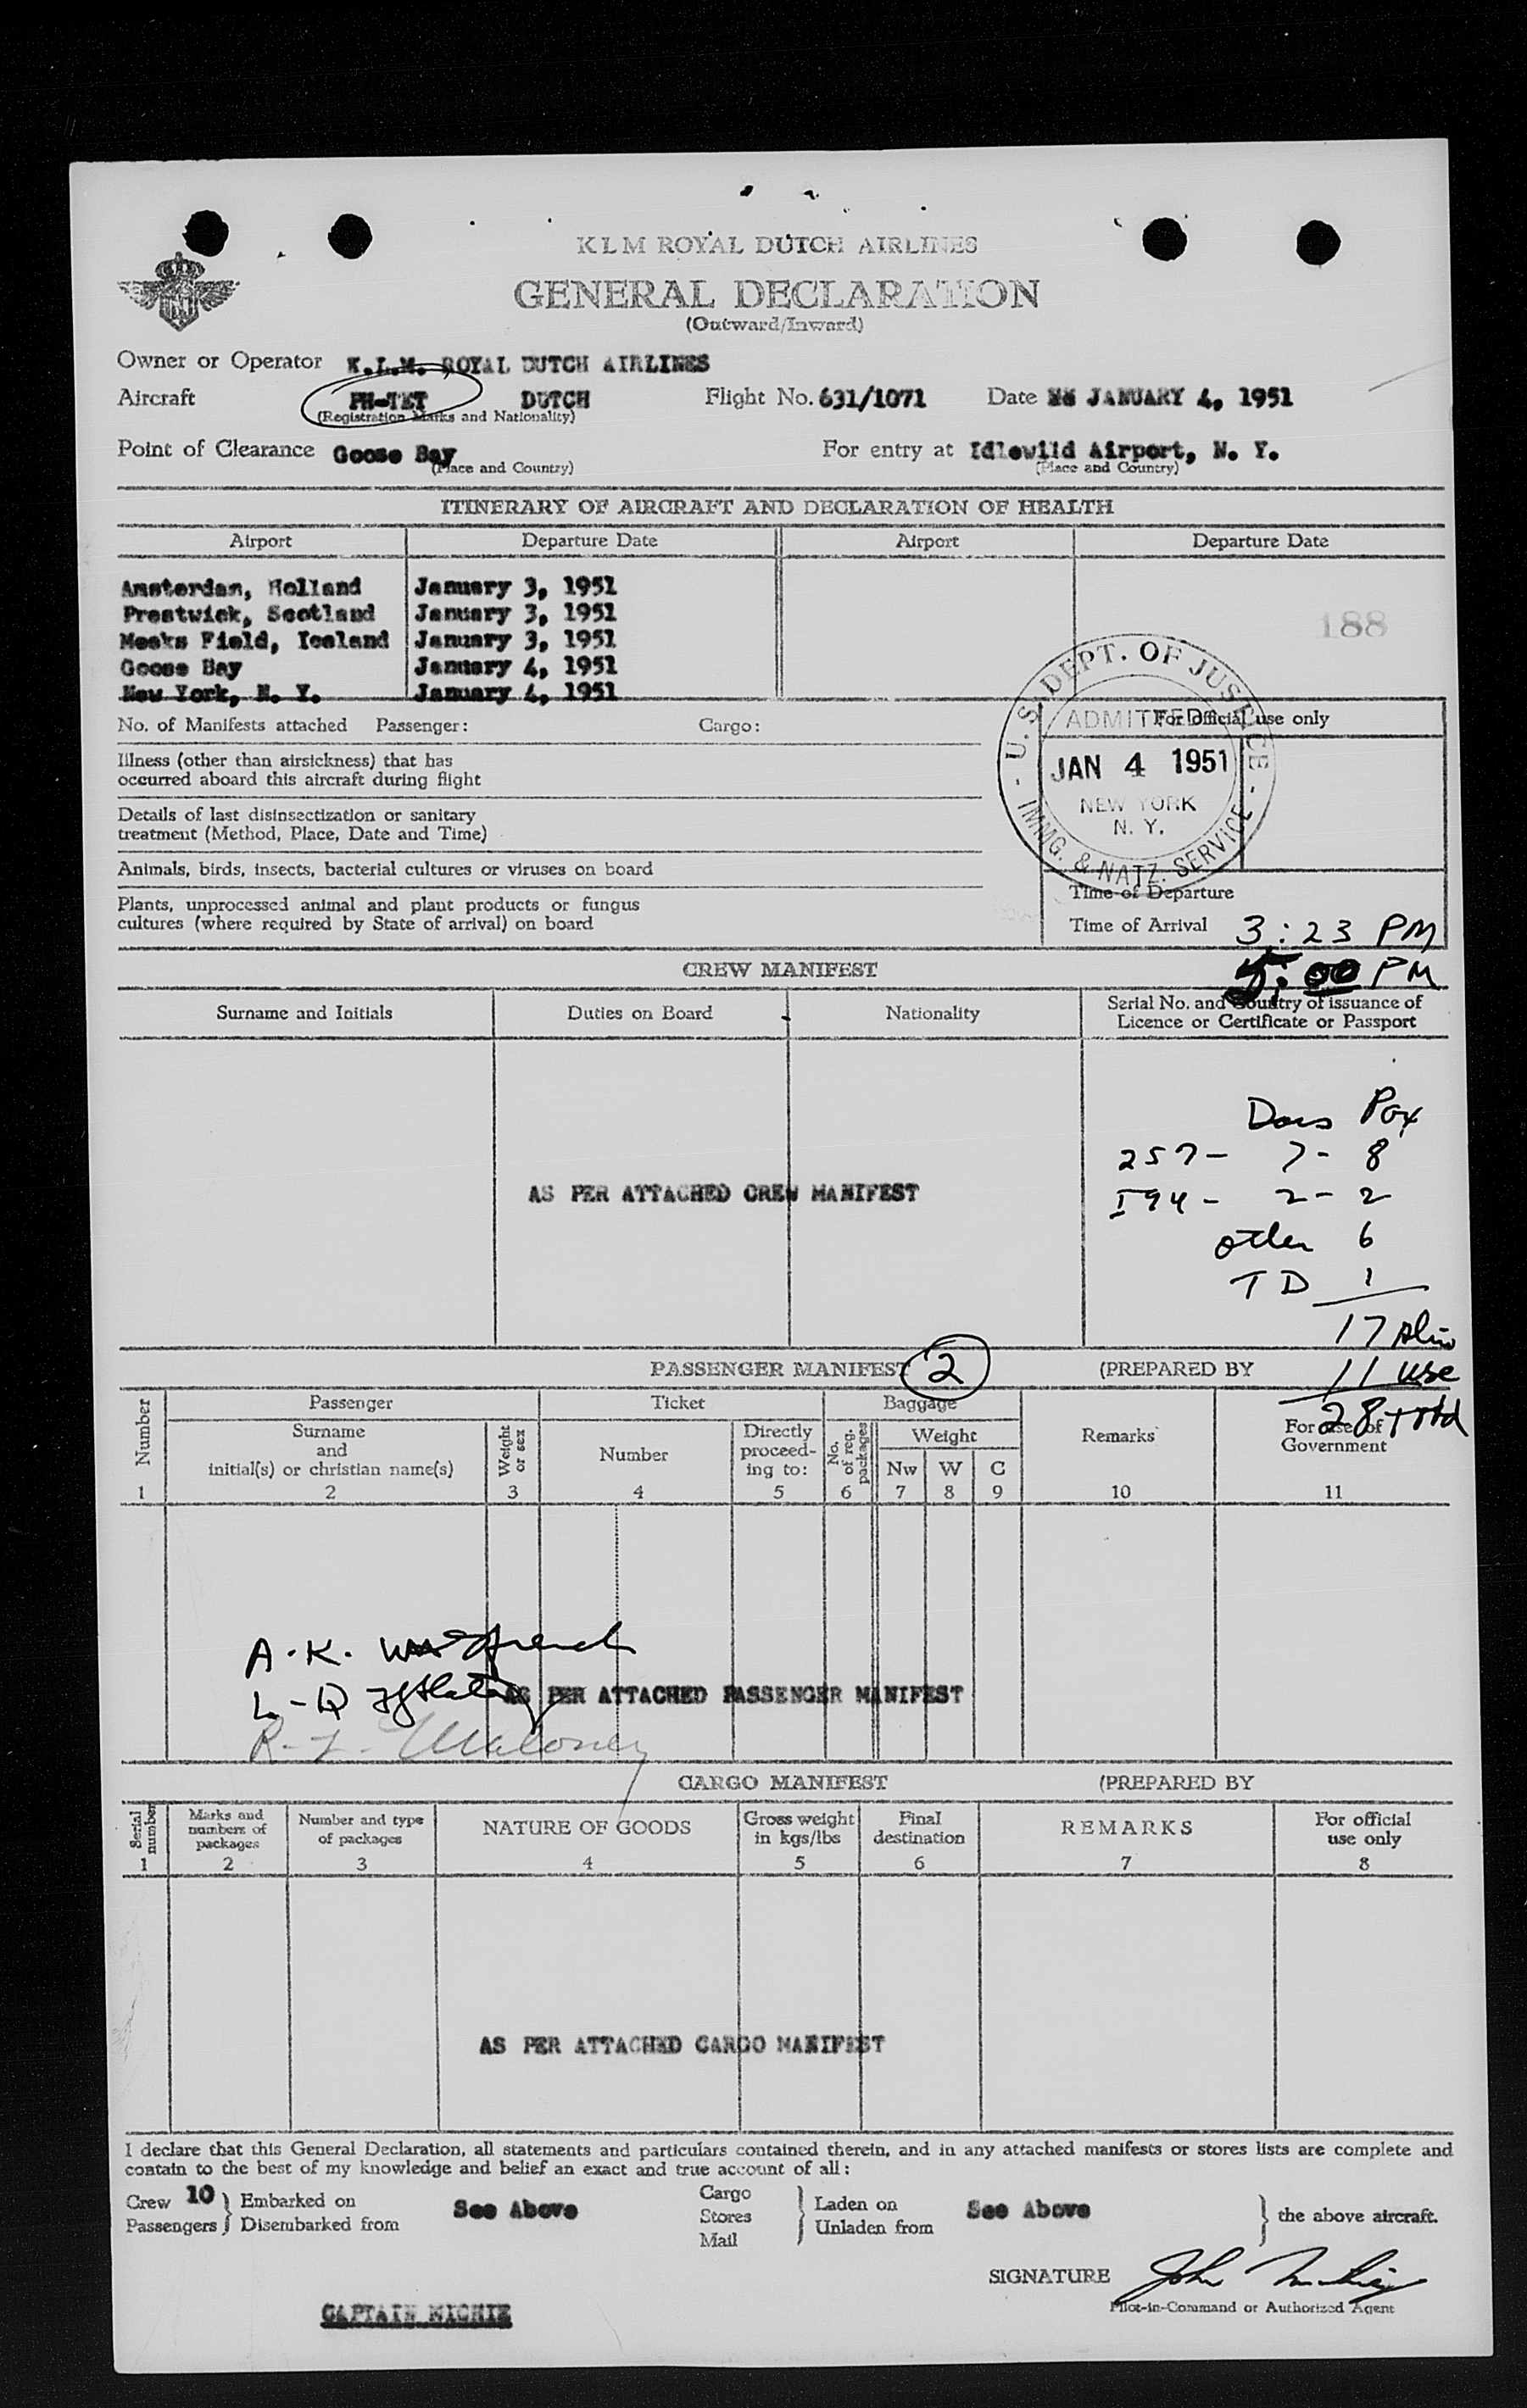 KLM ROYAL DUTCH AIRLINES
GENERAL DECLARATION
(Outward/Inward)
Owner or Operator K.L.M. ROYAL DUTCH AIRLINES
Aircraft PH-TET DUTCH Flight No. 631/1071 Date JANUARY 4, 1951
(Registration Marks and Nationality)
Point of Clearance Goose Bay For entry at Idlewild Airport, N. Y.
(Place and Country) (Place and Country)
ITINERARY OF AIRCRAFT AND DECLARATION OF HEALTH
Airport Departure Date Airport Departure Date
Amsterdam, Holland January 3, 1951
Prestwick, Scotland January 3, 1951
Meeks Field, Iceland January 3, 1951
Goose Bay January 4, 1951
New York, N. Y. January 4, 1951
188
U. S. DEPT. OF JUSTICE
IMMG. & NATZ. SERVICE
ADMITTED
JAN 4 1951
NEW YORK
N. Y.
No. of Manifests attached Passenger: Cargo: For official use only
Illness (other than airsickness) that has
occurred aboard this aircraft during flight
Details of last disinsectization or sanitary
treatment (Method, Place, Date and Time)
Animals, birds, insects, bacterial cultures or viruses on board
Plants, unprocessed animal and plant products or fungus
cultures (where required by State of arrival) on board
Time of Departure
Time of Arrival 3:23 PM
5:00 PM
CREW MANIFEST
Surname and Initials Duties on Board Nationality Serial No. and Country of issuance of
Licence or Certificate or Passport
Docs Pax
257- 7- 8
I94- 2- 2
other 6
TD 1
17 Alin
11 USC
28 total
AS PER ATTACHED CREW MANIFEST
PASSENGER MANIFEST 2 (PREPARED BY
Number Passenger Ticket Baggage Remarks For use of
Government
Surname
and
initial(s) or christian name(s)
Weight
or sex
Number
Directly
proceed-
ing to:
No.
of reg.
packages
Weight
Nw W C
1 2 3 4 5 6 7 8 9 10 11
A. K.
L-Q
AS PER ATTACHED PASSENGER MANIFEST
Maloney
CARGO MANIFEST (PREPARED BY
Serial
number
Marks and
numbers of
packages
Number and type
of packages
NATURE OF GOODS
Gross weight
in kgs/lbs
Final
destination
REMARKS
For official
use only
1 2 3 4 5 6 7 8
AS PER ATTACHED CARGO MANIFEST
I declare that this General Declaration, all statements and particulars contained therein, and in any attached manifests or stores lists are complete and
contain to the best of my knowledge and belief an exact and true account of all:
Crew 10 } Embarked on
Passengers } Disembarked from See Above
Cargo
Stores
Mail
} Laden on
Unladen from See Above } the above aircraft.
SIGNATURE John
Pilot-in-Command or Authorized Agent
CAPTAIN MICHIE